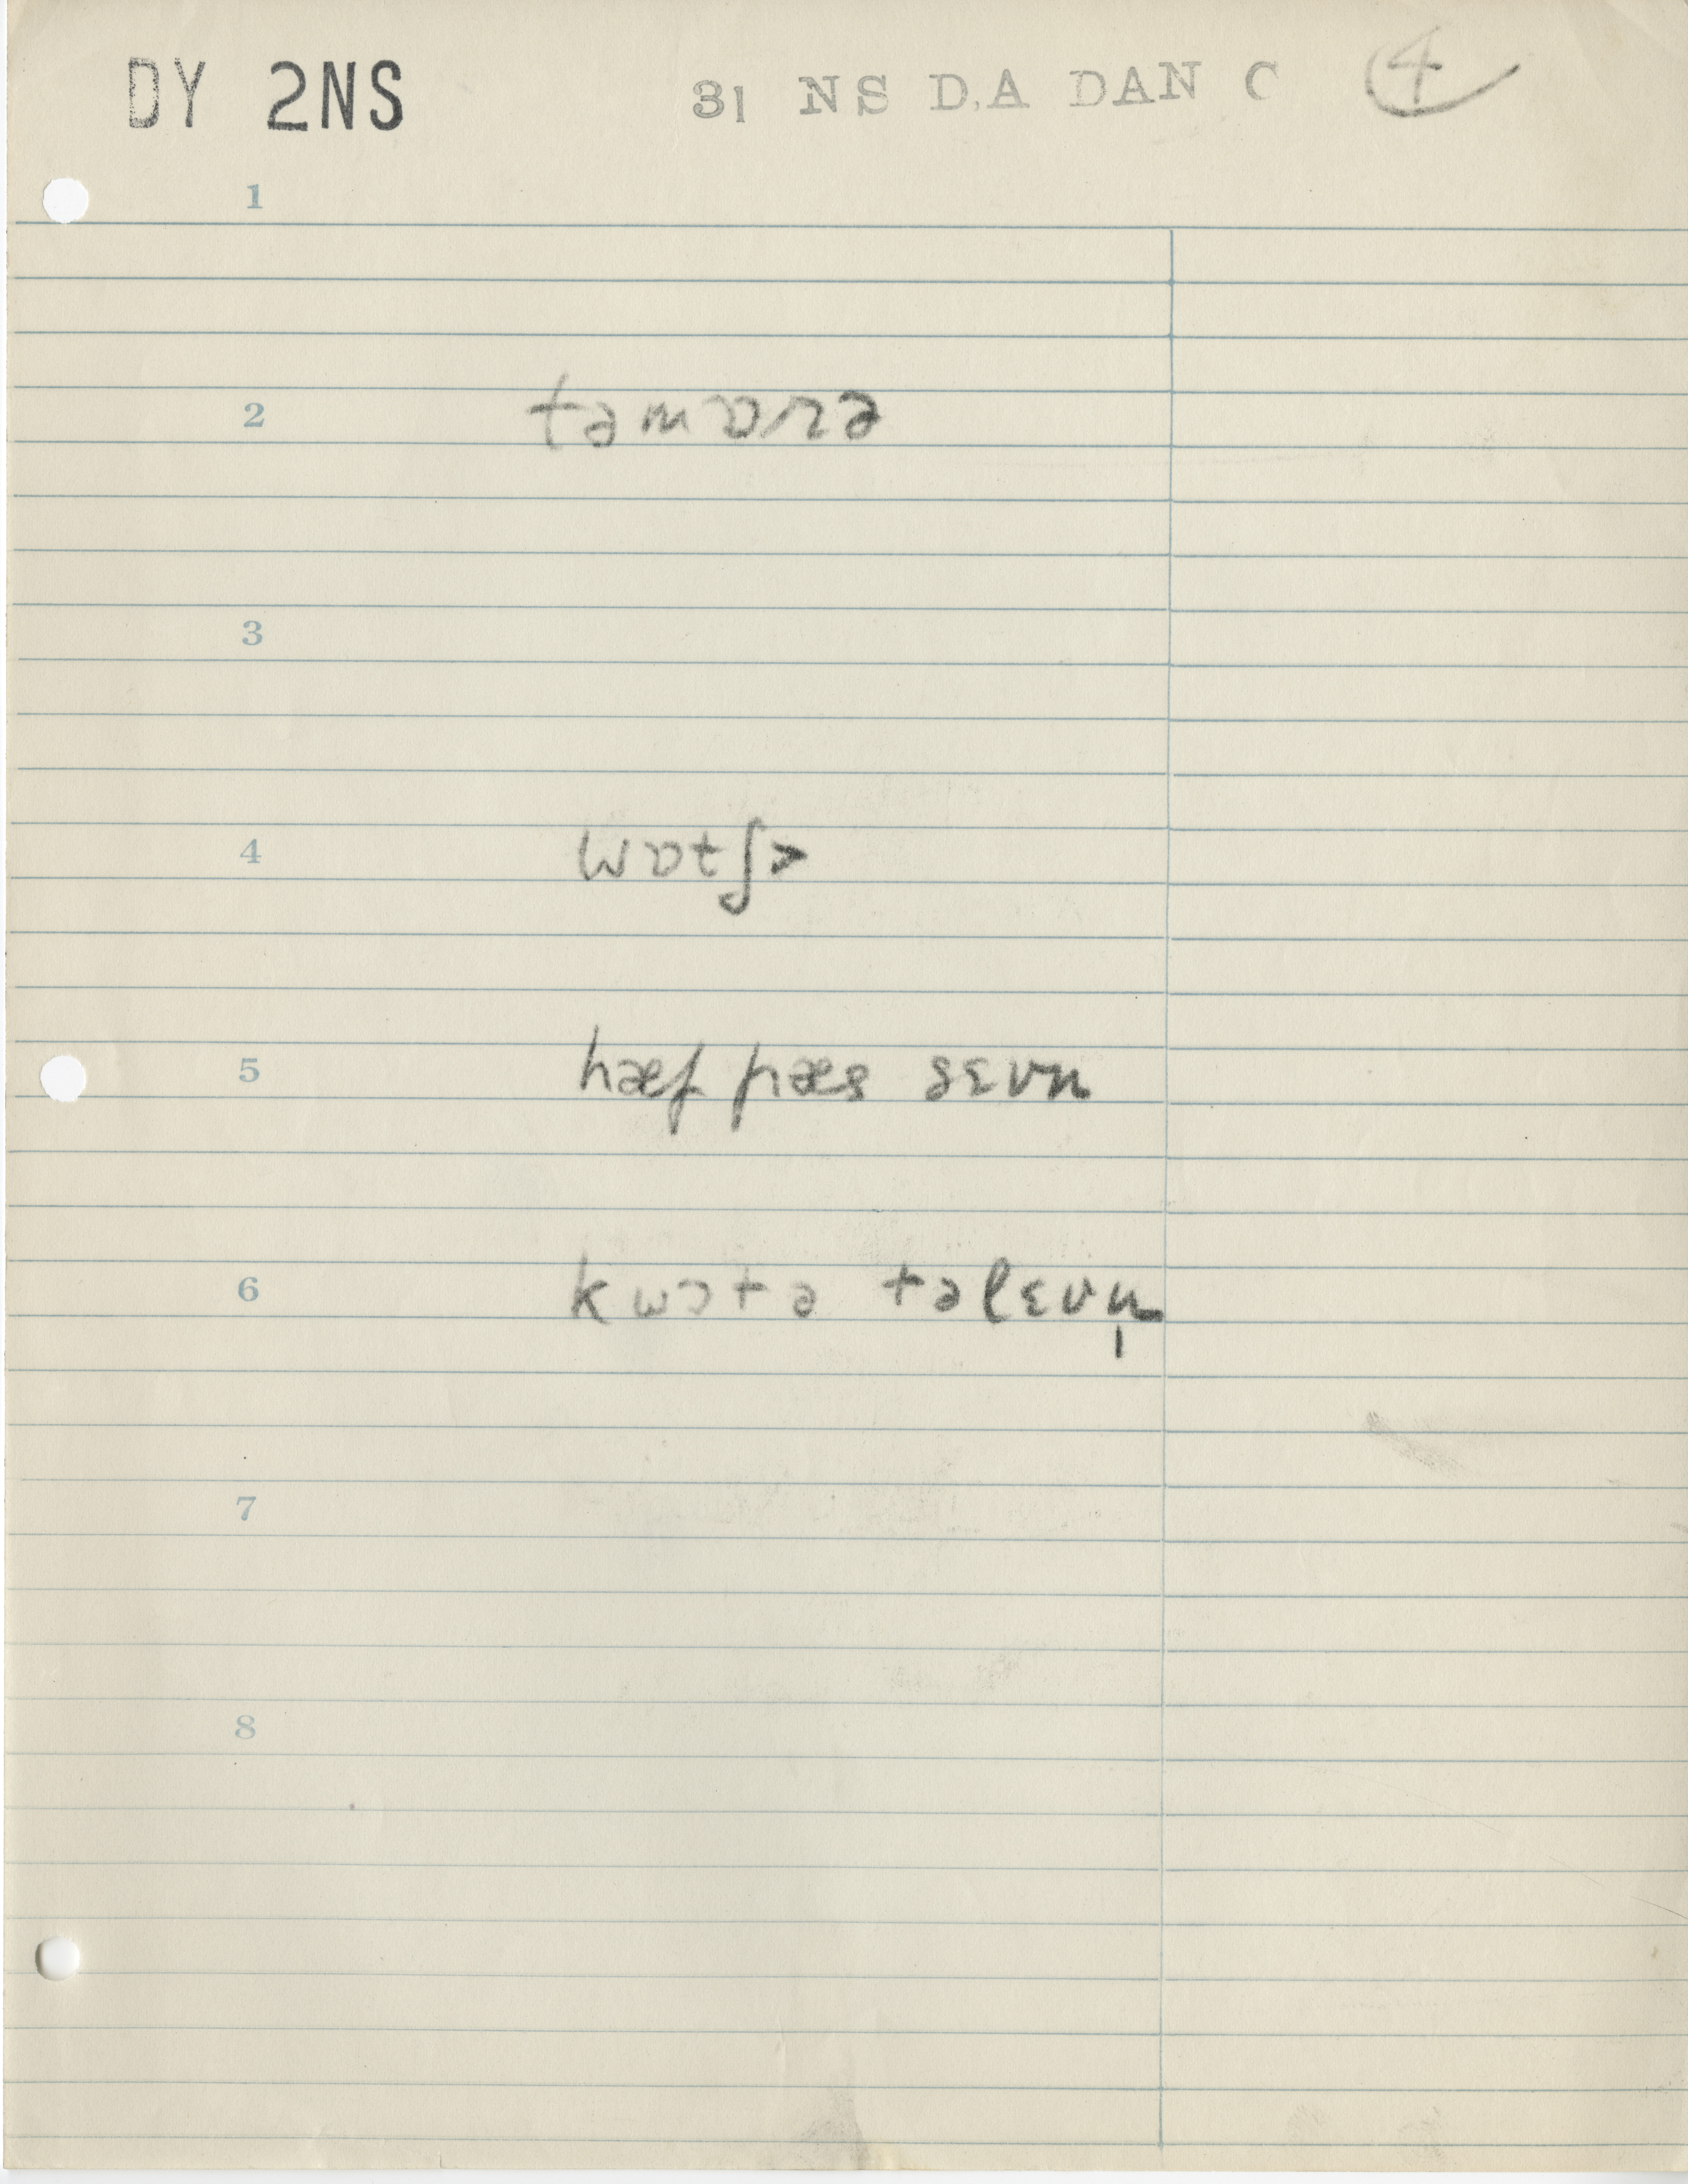 DY 2NS 31 NS D.A DAN C 4
1
2 təmɒrə
3
4 wɒtʃ>
5 hæf pæs sɛvn
6 kwɔtə təlɛvn̩
7
8